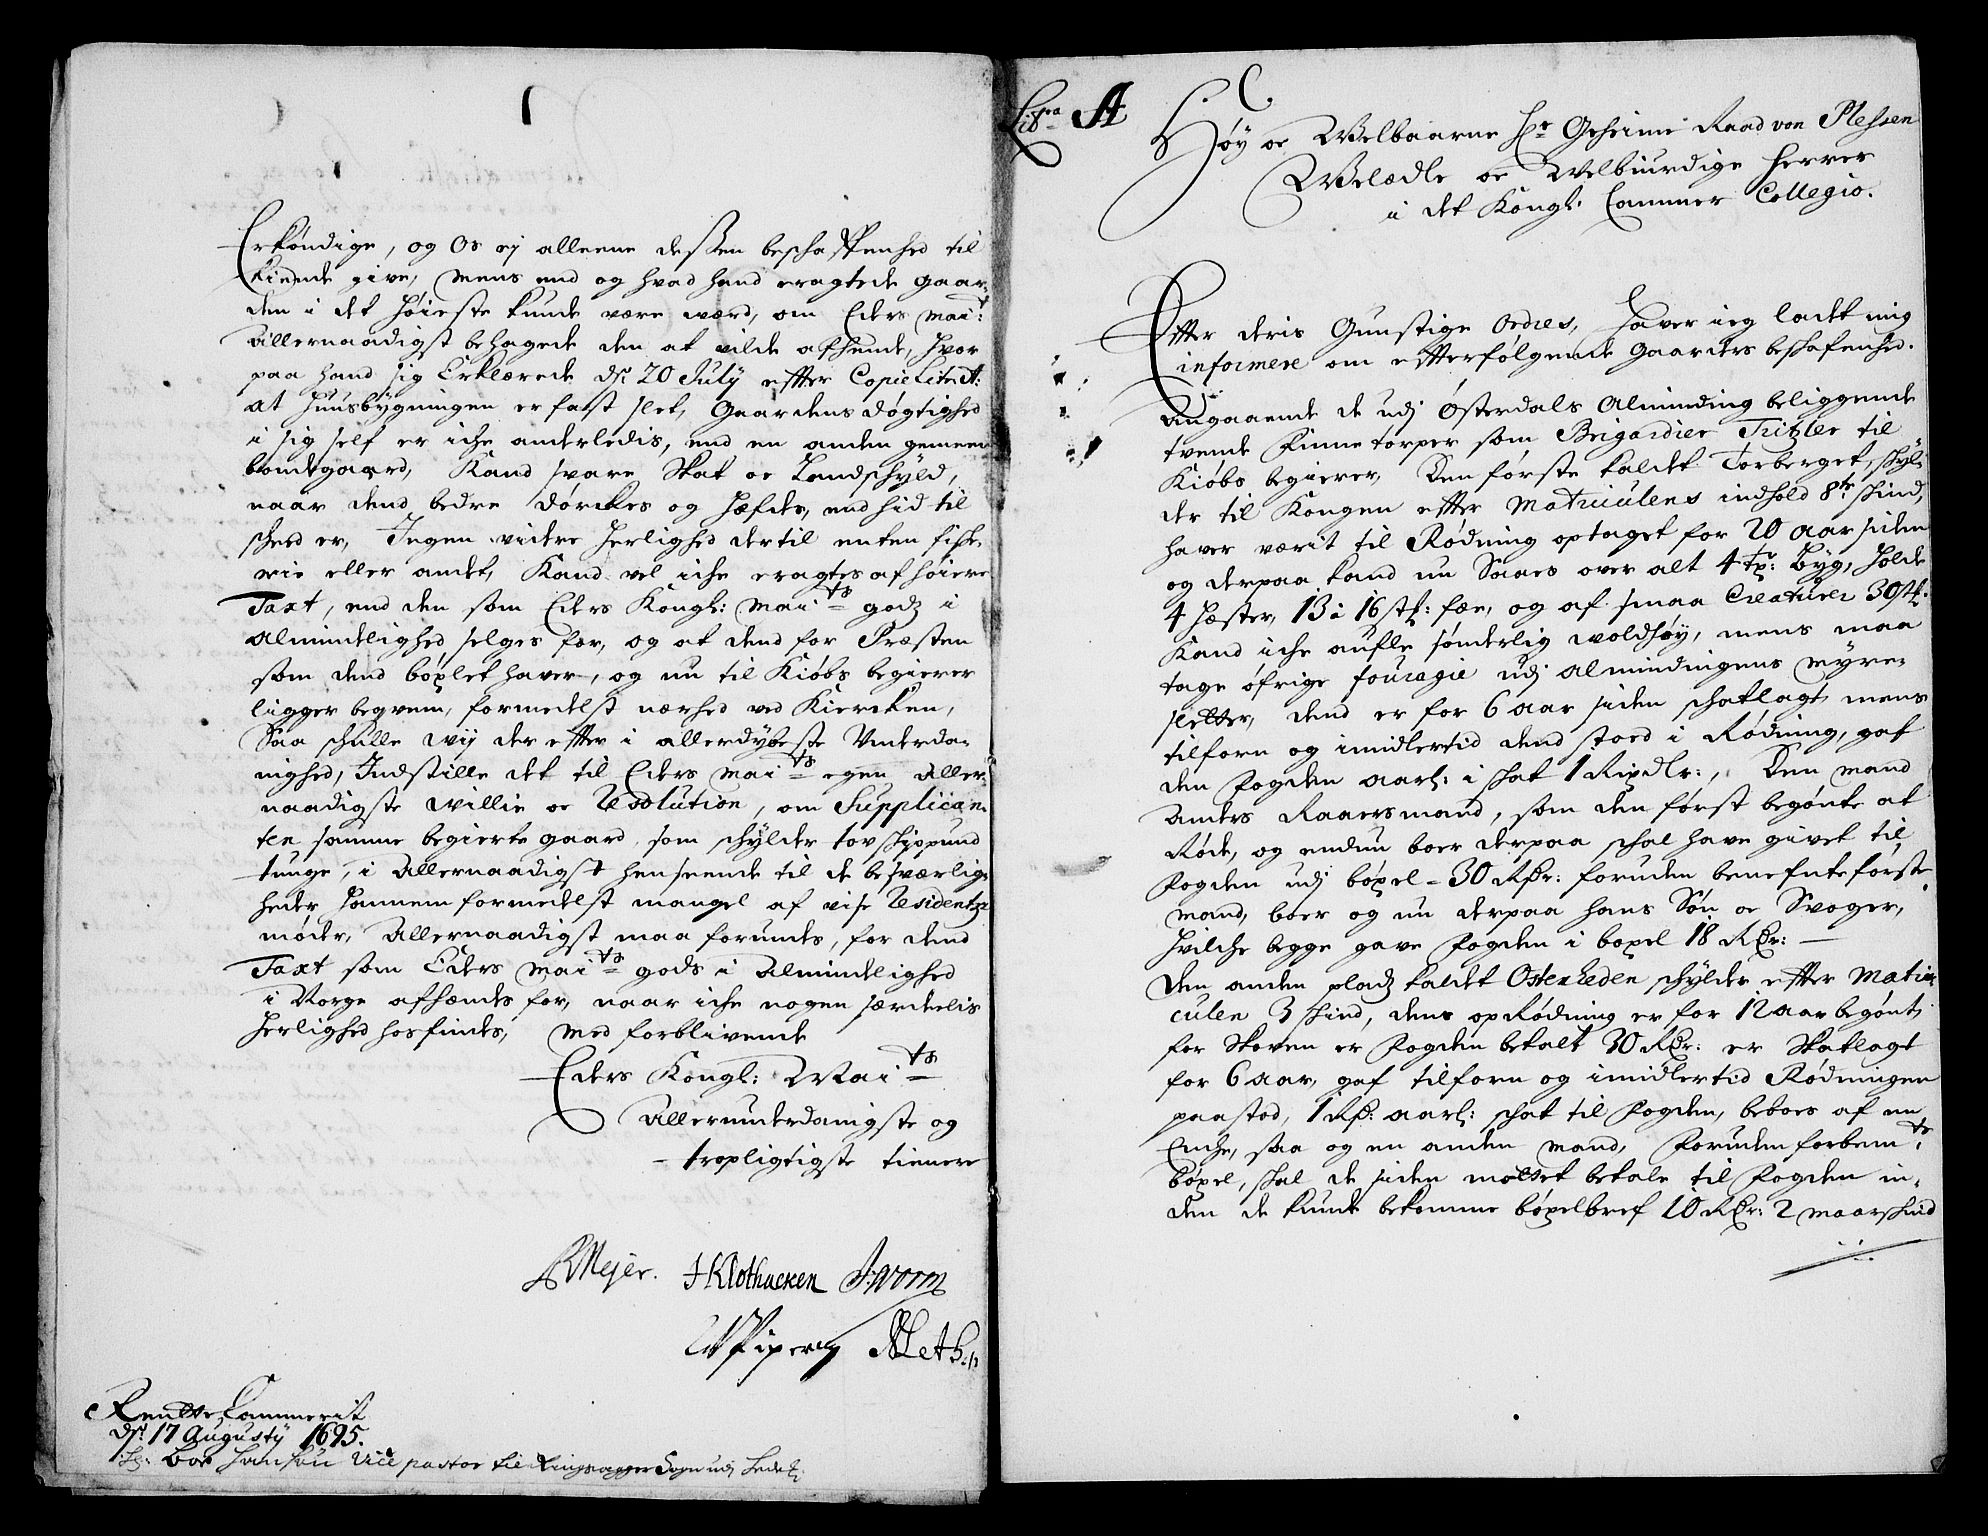 Erkøndige, og Os ej alleene dessen beschaffenhed til
kiende give, mens end og hvad hand eragtede gaar-
den i det høieste kunde være værd, om Eders Mai:t
allernaadigst behagede den at vilde afhende, hvor
paa hand sig Erklærede ds: 20 July effter Copie Lit: A:
at huusbygningen er fast slet, Gaardens døgtighed
i sig self er iche anderledis, end en anden gemeen
bondegaard, Kand svare Skat oc Landschyld,
naar dend bedre dørckes og hæfdes, end hid til
scheed er, Ingen videre herlighed dertil enten fiske-
rie eller andet, Kand vel iche eragtes af høiere
Taxt, end den som Eders Kongl: Mai:ts godz i
almindelighed selges for, og at dend for Præsten
som dend bøxlet haver, og nu til Kiøbs begierer
ligger beqvem, formedelst nærhed ved Kiercken,
Saa schulle wij der effter i allerdybeste Underda-
nighed, Indstille det til Eders Mai:ts egen Aller-
naadigste willie oc Resolution, om Supplican-
ten samme begierte gaard, som schylder tov skippund
tunge, i Allernaadigst henseende til de besværlig-
heder hannem formedelst mangel af vise Residentz
møder, Allernaadigst maa forundes, for dend
Taxt som Eders Mai:ts gods i Almindelighed
i Norge afhændes for, naar iche nogen særdelis
herlighed hosfindes, Med forblivende
Eders Kongl: Mai:ts
allerunderdanigste og
tropligtigste tienere
Meyer. H Klothacken J: Worm
W Piper A Leth.
RentteCammerit
ds: 17 Augusty 1695.
Hr: Boe Hansøn Vice pastor til Ringsager Sogn udj Hedem:
Litra A
Høy oc Welbaarne Hr Geheime Raad von Plessen
Welædle oc Welbiurdige Herrer
i det Kongl: Cammer Collegio.
Effter deris Gunstige Ordres, haver ieg ladet mig
informere om effterfølgende Gaarders beskafenhed.
Angaaende de udj Østerdals Alminding beliggende
tvende Finnetorper som Brigardier Tritzler til
Kiøbs begierer, Den første kaldet Torberget, skyl-
der til Kongen effter Matriculens indhold 8te skind,
haver værit til Rødning optaget for 20 aar siden
og derpaa kand nu Saaes over alt 4 tr: Byg, holde
4 hæster, 13 à 16 stk: fæe, og af smaa Creaturer 30 stk:
Kand iche aufle sønderlig woldhøy, mens maa
tage øfrige fouragie udj almindingens myre-
sletter, dend er for 6 aar siden schatlagt, mens
tilforn og imidlertid dend stoed i Rødning, gaf
den Fogden aarl: i schat 1 Rixdlr:, Den mand
Anders Raaersmand, som den først begønte at
Røde, og endnu boer derpaa schal have givet til
Fogden udj bøxel - 30 Rdr: foruden benefnte første
mand, boer og nu derpaa hans Søn oc Svoger,
hvilche begge gave Fogden i boxel 18 Rdr: —
Den anden plads kaldet Osterheden schylder effter Matri-
culen 3 skind, dens opRødning er for 12 aar begønt,
for Skoven er Fogden betalt 30 Rdr: er Skatlagt
for 6 aar, gaf tilforn og imidlertid Rødningen
paastod, 1 Rdr: aarl: schat til Fogden, beboes af en
Enche, saa og en anden mand, Foruden forbem:te
bøxel, skal de siden mottet betale til Fogden in-
den de kunde bekomme bøxelbref 10 Rdr: 2 maarskind